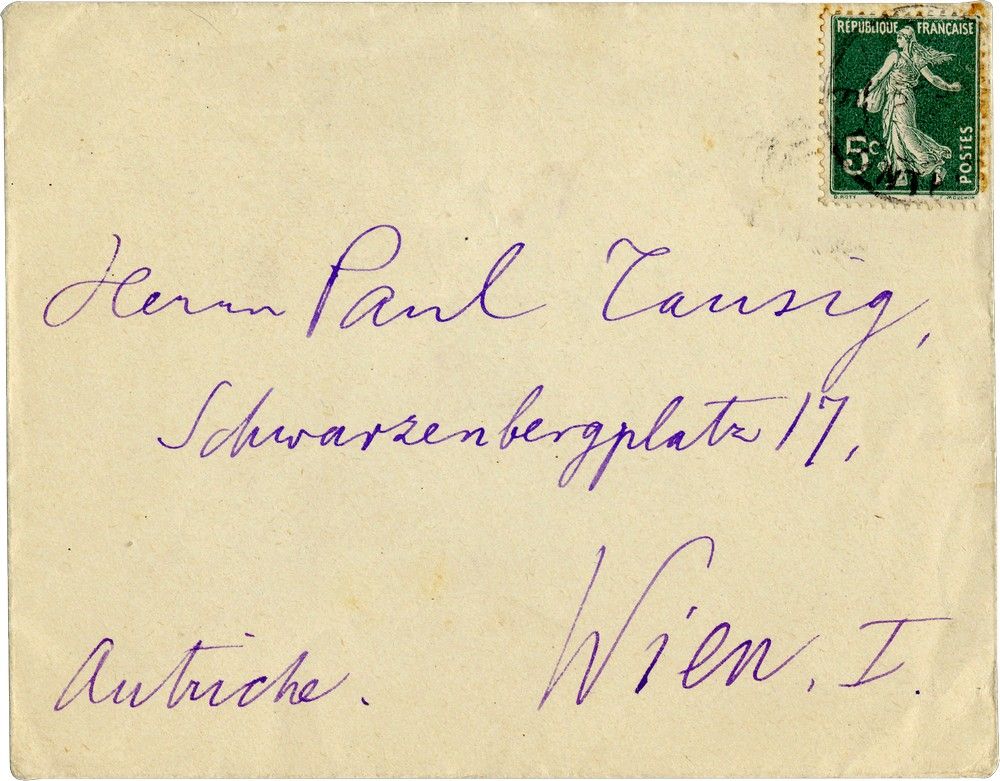 RÉPUBLIQUE FRANÇAISE
5c
POSTES
O. ROTY
Herrn Paul Tausig,
Schwarzenbergplatz 17,
Wien. I.
Autriche.